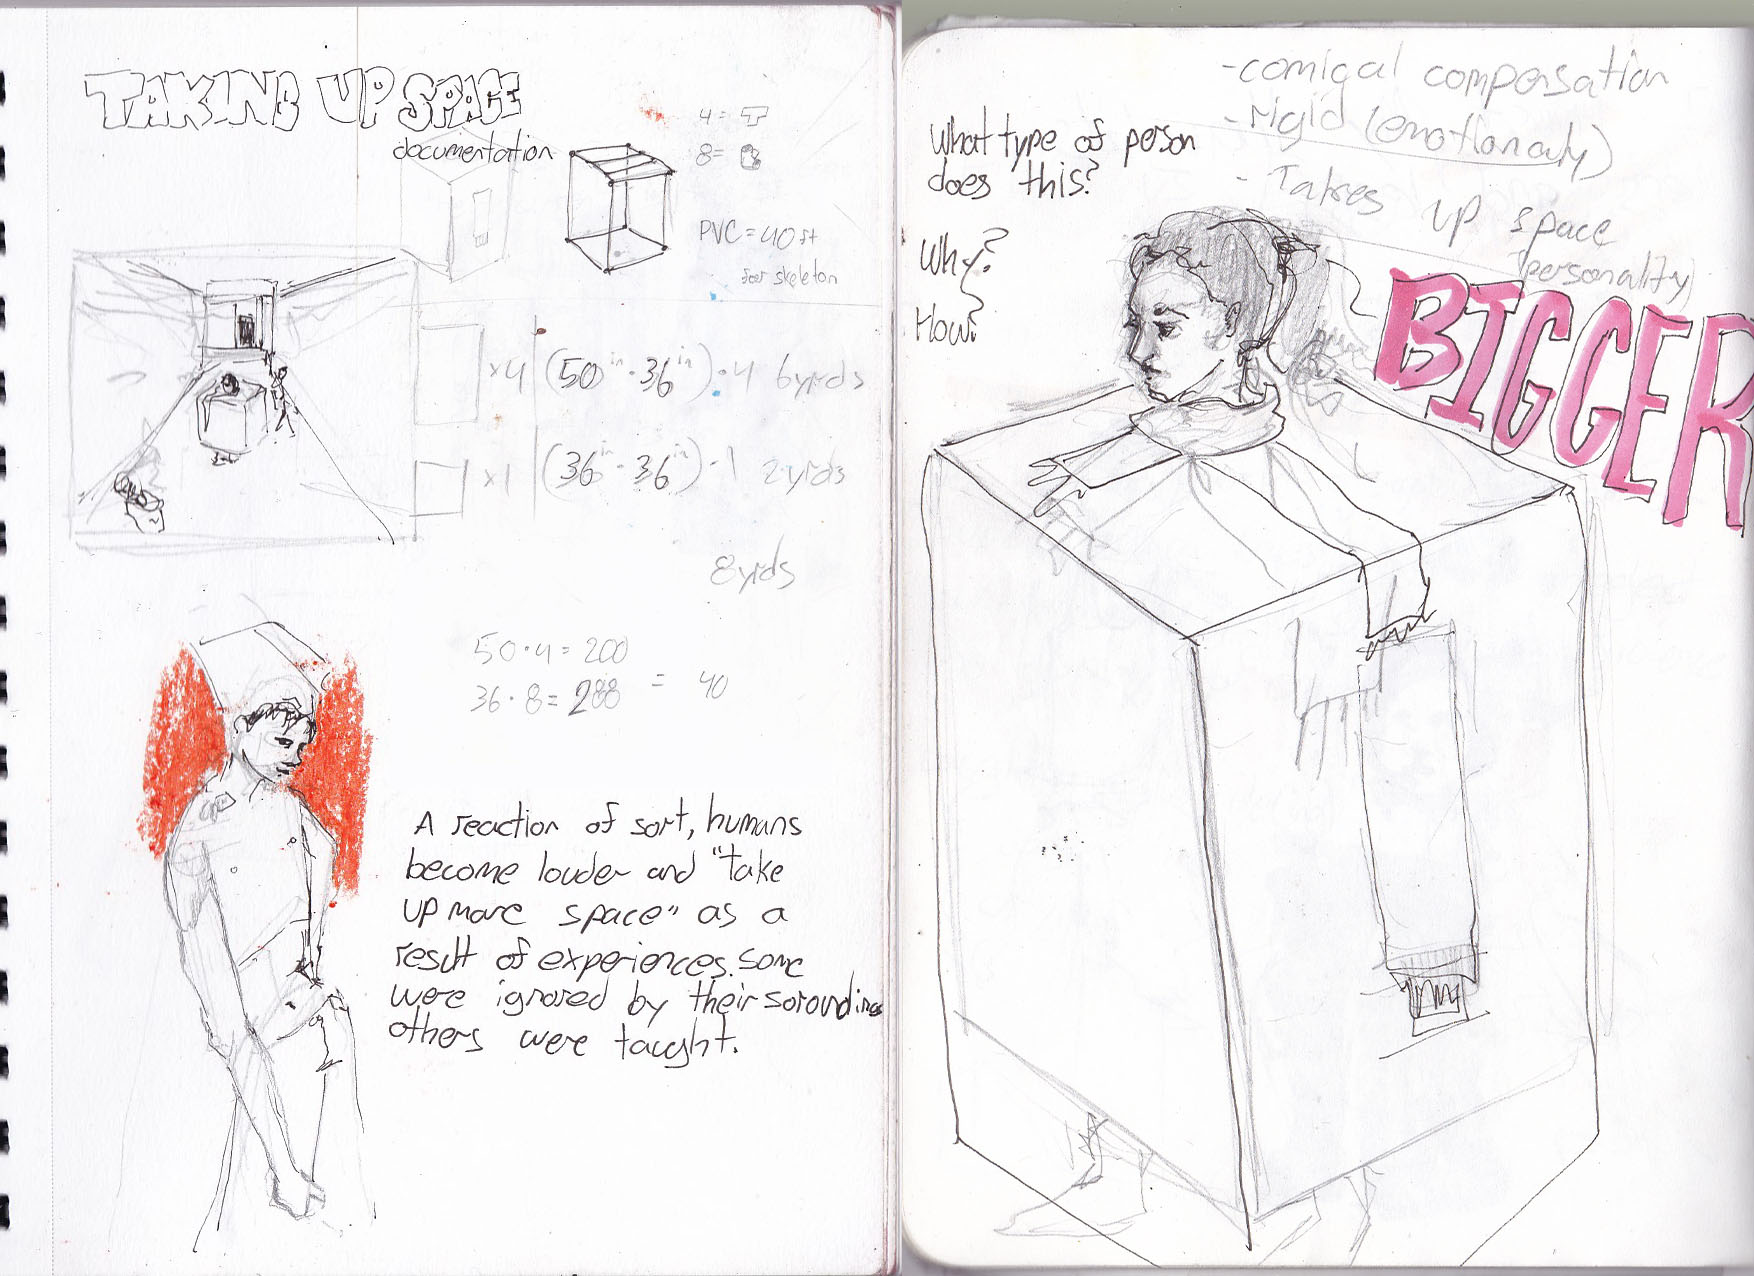 TAKING UP SPACE
documentation
4 =
8 =
PVC = 40 ft
for skeleton
x4 (50in · 36in) · 4 6yrds
x1 (36in · 36in) · 1 2yrds
8yrds
50 · 4 = 200
36 · 8 = 288 = 40
A reaction of sort, humans
become louder and "take
up more space" as a
result of experiences. Some
were ignored by their soroundings
others were taught.
-comical compensation
-rigid (emotionaly)
- Takes up space
(personality)
What type of person
does this?
Why?
How?
BIGGER